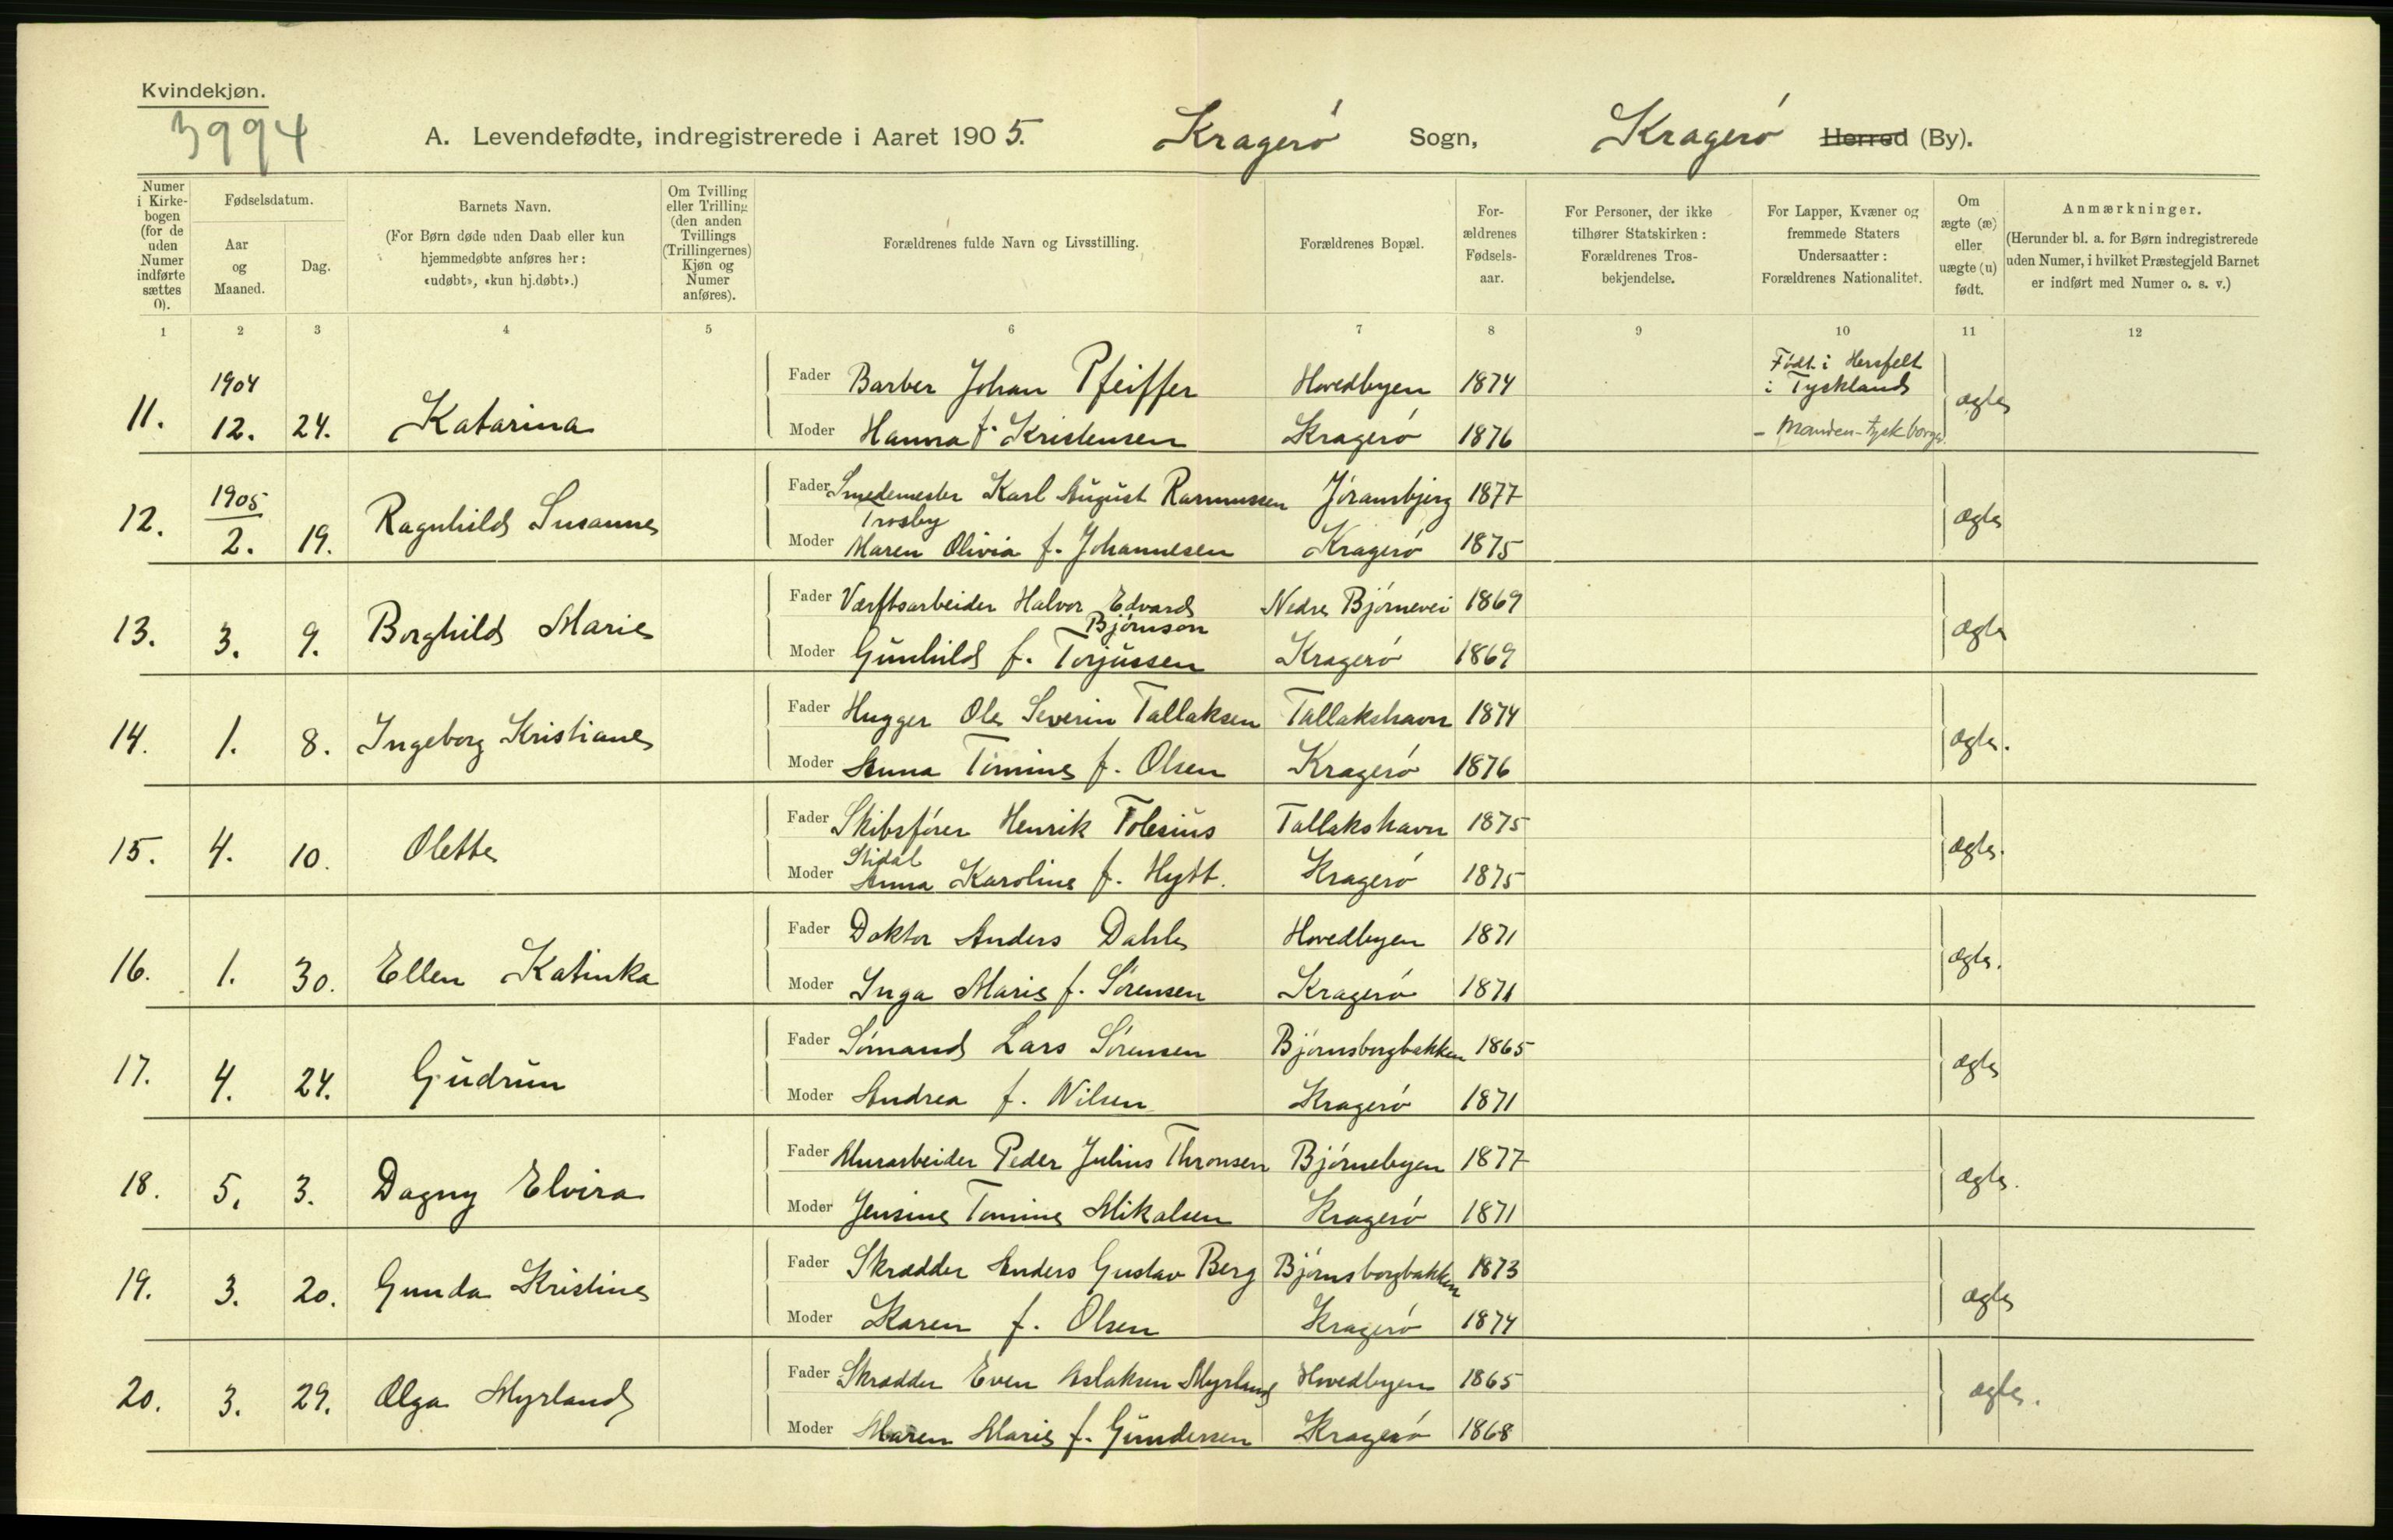 Kvindekjøn.
3994
A. Levendefødte, indregistrerede i Aaret 1905. Kragerø Sogn, Kragerø Herred (By).
Numer i Kirke-bogen (for de uden Numer indførte sættes 0).
Fødselsdatum.
Aar og Maaned.
Dag.
Barnets Navn.
(For Børn døde uden Daab eller kun hjemmedøbte anføres her: «udøbt», «kun hj.døbt».)
Om Tvilling eller Trilling (den anden Tvillings (Trillingernes) Kjøn og Numer anføres).
Forældrenes fulde Navn og Livsstilling.
Forældrenes Bopæl.
For-ældrenes Fødsels-aar.
For Personer, der ikke tilhører Statskirken: Forældrenes Tros-bekjendelse.
For Lapper, Kvæner og fremmede Staters Undersaatter: Forældrenes Nationalitet.
Om ægte (æ) eller uægte (u) født.
Anmærkninger.
(Herunder bl. a. for Børn indregistrerede uden Numer, i hvilket Præstegjeld Barnet er indført med Numer o. s. v.)
1 2 3 4 5 6 7 8 9 10 11 12
1904
Fader Barber Johan Pfeiffer Hovedbyen 1874 Født i Hersfelt i Tyskland
11. 12. 24. Katarina ægte
Moder Hanna f. Kristensen Kragerø 1876 - Manden - tysk borger.
1905
Fader Smedemester Karl August Rasmussen Trosby Jøransbjerg 1877
12. 2. 19. Ragnhild Susanne ægte
Moder Maren Olivia f. Johannesen Kragerø 1875
Fader Værftsarbeider Halvor Edvard Bjørnson Nedre Bjørnevei 1869
13. 3. 9. Borghild Marie ægte
Moder Gunhild f. Torjussen Kragerø 1869
Fader Hugger Ole Severin Tallaksen Tallakshavn 1874
14. 1. 8. Ingeborg Kristiane ægte.
Moder Anna Tomine f. Olsen Kragerø 1876
Fader Skibsfører Henrik Tobesius Stidal Tallakshavn 1875
15. 4. 10. Olette ægte.
Moder Anna Karoline f. Hytt. Kragerø 1875
Fader Doktor Anders Dahle Hovedbyen 1871
16. 1. 30. Ellen Katinka ægte.
Moder Inga Marie f. Sørensen Kragerø 1871
Fader Sømand Lars Sørensen Bjørnsborgbakken 1865
17. 4. 24. Gudrun ægte
Moder Andrea f. Nilsen Kragerø 1871
Fader Murarbeider Peder Julius Thronsen Bjørnebyen 1877
18. 5. 3. Dagny Elvira ægte.
Moder Jensine Tomine Mikalsen Kragerø 1871
Fader Skrædder Anders Gustav Berg Bjørnsborgbakken 1873
19. 3. 20. Gunda Kristine ægte
Moder Karen f. Olsen Kragerø 1874
Fader Skrædder Even Aslaksen Myrland Hovedbyen 1865
20. 3. 29. Olga Myrland ægte.
Moder Maren Marie f. Gundersen Kragerø 1868